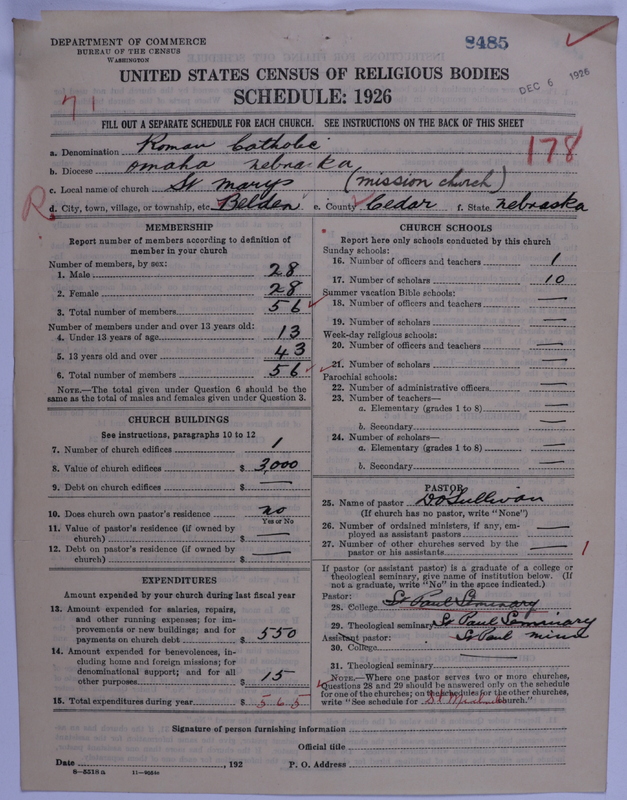 DEPARTMENT OF COMMERCE
BUREAU OF THE CENSUS
WASHINGTON
8485
DEC 6 1926
UNITED STATES CENSUS OF RELIGIOUS BODIES
SCHEDULE: 1926
71
FILL OUT A SEPARATE SCHEDULE FOR EACH CHURCH. SEE INSTRUCTIONS ON THE BACK OF THIS SHEET
178
a. Denomination Roman Catholic
b. Diocese Omaha Nebraska
c. Local name of church St Marys (mission church)
R d. City, town, village, or township, etc. Belden e. County Cedar f. State Nebraska
MEMBERSHIP
Report number of members according to definition of member in your church
Number of members, by sex:
1. Male 28
2. Female 28
3. Total number of members 56
Number of members under and over 13 years old:
4. Under 13 years of age 13
5. 13 years old and over 43
6. Total number of members 56
NOTE.—The total given under Question 6 should be the same as the total of males and females given under Question 3.
CHURCH BUILDINGS
See instructions, paragraphs 10 to 12
7. Number of church edifices 1
8. Value of church edifices $ 3,000
9. Debt on church edifices $ —
10. Does church own pastor's residence no
Yes or No
11. Value of pastor's residence (if owned by church) $ —
12. Debt on pastor's residence (if owned by church) $ —
EXPENDITURES
Amount expended by your church during last fiscal year
13. Amount expended for salaries, repairs, and other running expenses; for improvements or new buildings; and for payments on church debt $ 550
14. Amount expended for benevolences, including home and foreign missions; for denominational support; and for all other purposes $ 15
15. Total expenditures during year $ 565
CHURCH SCHOOLS
Report here only schools conducted by this church
Sunday schools:
16. Number of officers and teachers 1
17. Number of scholars 10
Summer vacation Bible schools:
18. Number of officers and teachers —
19. Number of scholars —
Week-day religious schools:
20. Number of officers and teachers —
21. Number of scholars —
Parochial schools:
22. Number of administrative officers —
23. Number of teachers—
a. Elementary (grades 1 to 8) —
b. Secondary —
24. Number of scholars—
a. Elementary (grades 1 to 8) —
b. Secondary —
PASTOR
25. Name of pastor D O'Sullivan
(If church has no pastor, write "None")
26. Number of ordained ministers, if any, employed as assistant pastors —
27. Number of other churches served by the pastor or his assistants — 1
If pastor (or assistant pastor) is a graduate of a college or theological seminary, give name of institution below. (If not a graduate, write "No" in the space indicated.)
Pastor:
28. College St Paul Seminary
29. Theological seminary St Paul Seminary
Assistant pastor: St Paul Minn
30. College
31. Theological seminary
NOTE.—Where one pastor serves two or more churches, Questions 28 and 29 should be answered only on the schedule for one of the churches; on the schedules for the other churches, write "See schedule for church."
Signature of person furnishing information
Official title
Date , 192 P. O. Address
8—5518a 11—9584